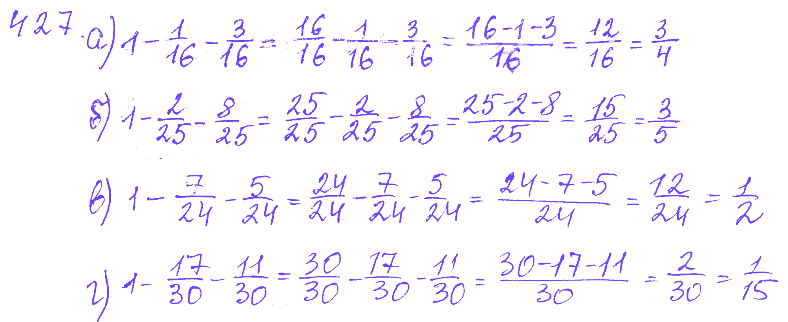 427. а) 1 - 1/16 - 3/16 = 16/16 - 1/16 - 3/16 = (16-1-3)/16 = 12/16 = 3/4
б) 1 - 2/25 - 8/25 = 25/25 - 2/25 - 8/25 = (25-2-8)/25 = 15/25 = 3/5
в) 1 - 7/24 - 5/24 = 24/24 - 7/24 - 5/24 = (24-7-5)/24 = 12/24 = 1/2
г) 1 - 17/30 - 11/30 = 30/30 - 17/30 - 11/30 = (30-17-11)/30 = 2/30 = 1/15